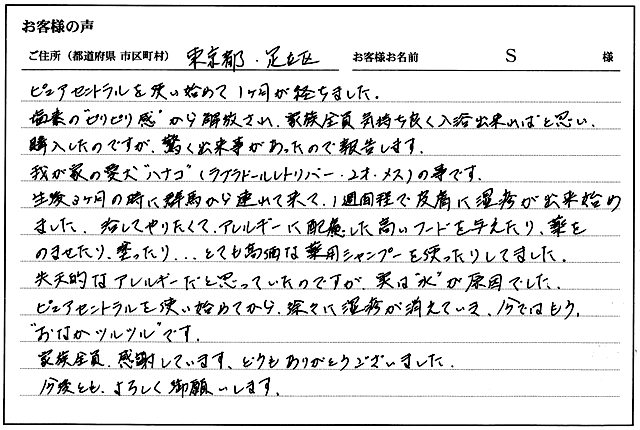 お客様の声
ご住所（都道府県 市区町村） 東京都・足立区 お客様お名前 S 様
ピュアセントラルを使い始めて1ヶ月が経ちました。
塩素の"ピリピリ感"から解放され、家族全員気持ち良く入浴出来ればと思い、
購入したのですが、驚く出来事があったので報告します。
我が家の愛犬"ハナコ"（ラブラドールレトリバー・2才・メス）の事です。
生後3ヶ月の時に群馬から連れて来て、1週間程で皮膚に湿疹が出来始め
ました。治してやりたくて、アレルギーに配慮した高いフードを与えたり、薬を
のませたり、塗ったり...とても高価な薬用シャンプーを使ったりしてました。
先天的なアレルギーだと思っていたのですが、実は"水"が原因でした。
ピュアセントラルを使い始めてから、徐々に湿疹が消えていき、今ではもう、
"おなかツルツル"です。
家族全員、感謝しています。どうもありがとうございました。
今後とも、よろしく御願いします。